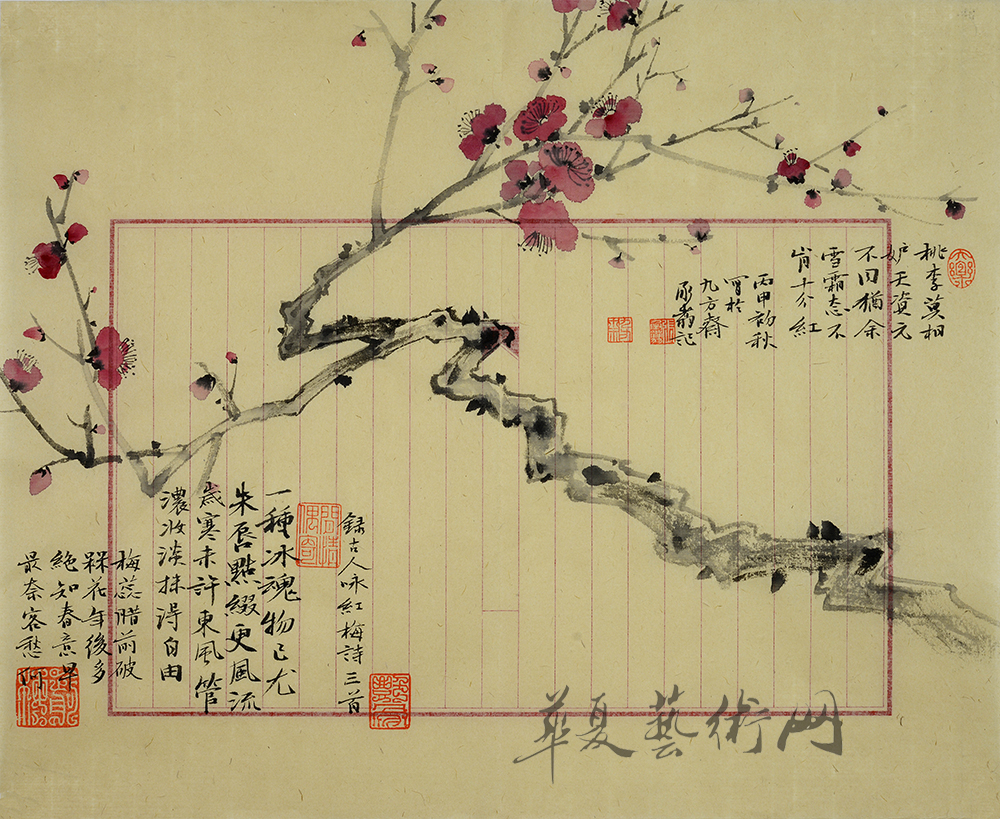 桃李莫相
妒夭資元
不同猶余
雪霜态不
肯十分紅
丙申初秋
寫於
九方齋
記
錄古人咏紅梅詩三首
閒情偶寄
一種冰魂物已尤
朱唇點綴更風流
歲寒未許東風管
濃妆淡抹得自由
梅蕊腊前破
槑花年後多
絶知春意早
最奈客愁何
華夏藝術网